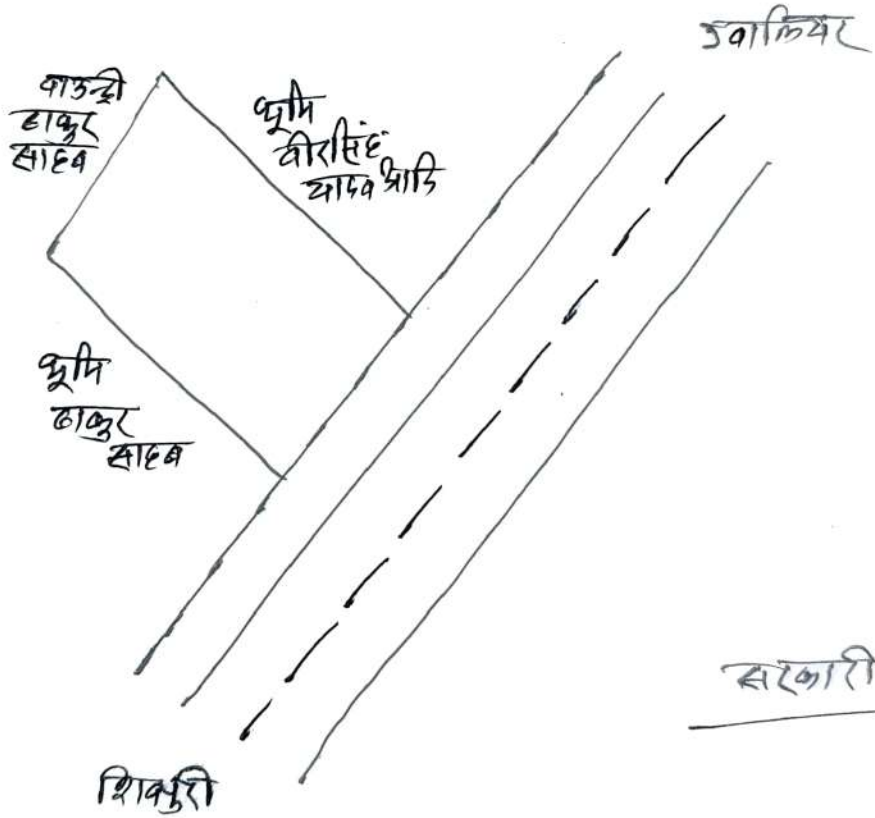 ग्वालियर
वाउन्ड्री
ठाकुर
साहब
भूमि
वीरसिंह
यादव आदि
भूमि
ठाकुर
साहब
सरकारी
शिवपुरी